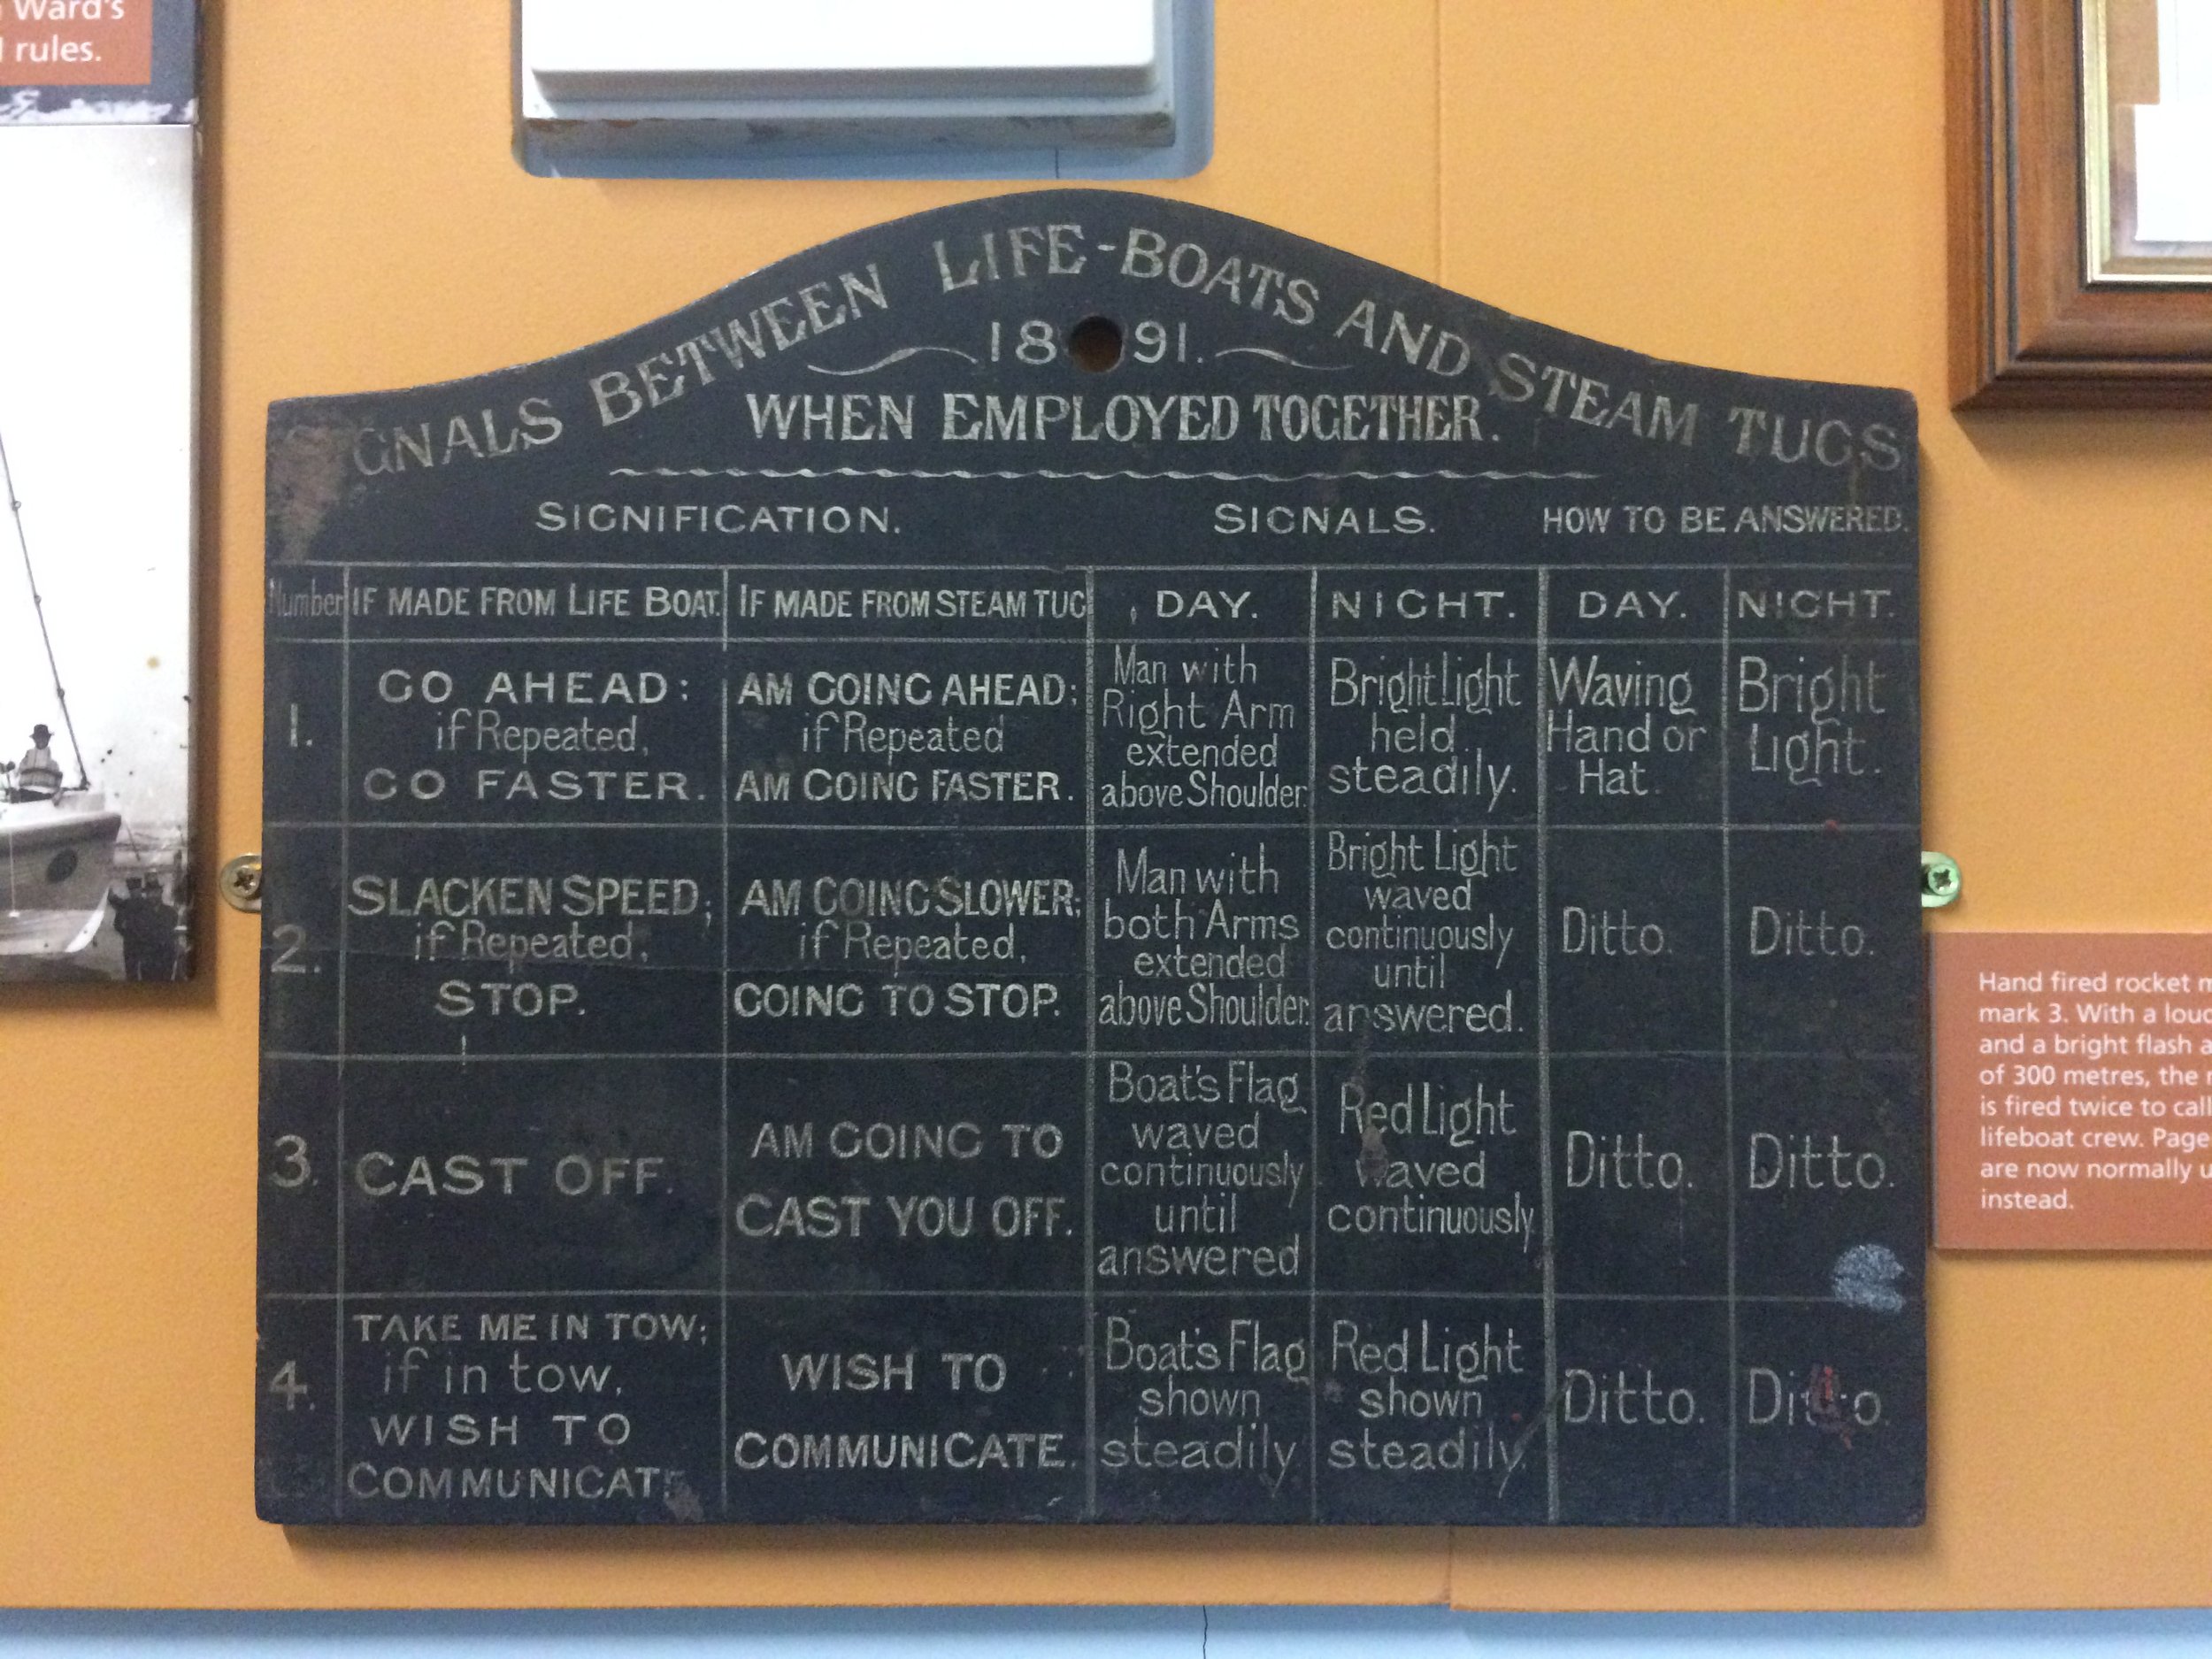 Ward's
rules.
GNALS BETWEEN LIFE-BOATS AND STEAM TUGS
1891.
WHEN EMPLOYED TOGETHER.
SIGNIFICATION. SIGNALS. HOW TO BE ANSWERED.
Number IF MADE FROM LIFE BOAT. IF MADE FROM STEAM TUG DAY. NIGHT. DAY. NIGHT.
1.
GO AHEAD:
if Repeated,
GO FASTER.
AM GOING AHEAD;
if Repeated
AM GOING FASTER.
Man with
Right Arm
extended
above Shoulder.
Bright Light
held
steadily.
Waving
Hand or
Hat.
Bright
Light.
2.
SLACKEN SPEED;
if Repeated,
STOP.
AM GOING SLOWER;
if Repeated,
GOING TO STOP.
Man with
both Arms
extended
above Shoulder.
Bright Light
waved
continuously
until
answered.
Ditto.
Ditto.
3.
CAST OFF.
AM GOING TO
CAST YOU OFF.
Boat's Flag
waved
continuously
until
answered
Red Light
waved
continuously
Ditto.
Ditto.
4.
TAKE ME IN TOW;
if in tow,
WISH TO
COMMUNICATE
WISH TO
COMMUNICATE.
Boat's Flag
shown
steadily
Red Light
shown
steadily.
Ditto.
Ditto.
Hand fired rocket
mark 3. With a
and a bright flash
of 300 metres, the
is fired twice to call
lifeboat crew.
are now normally
instead.